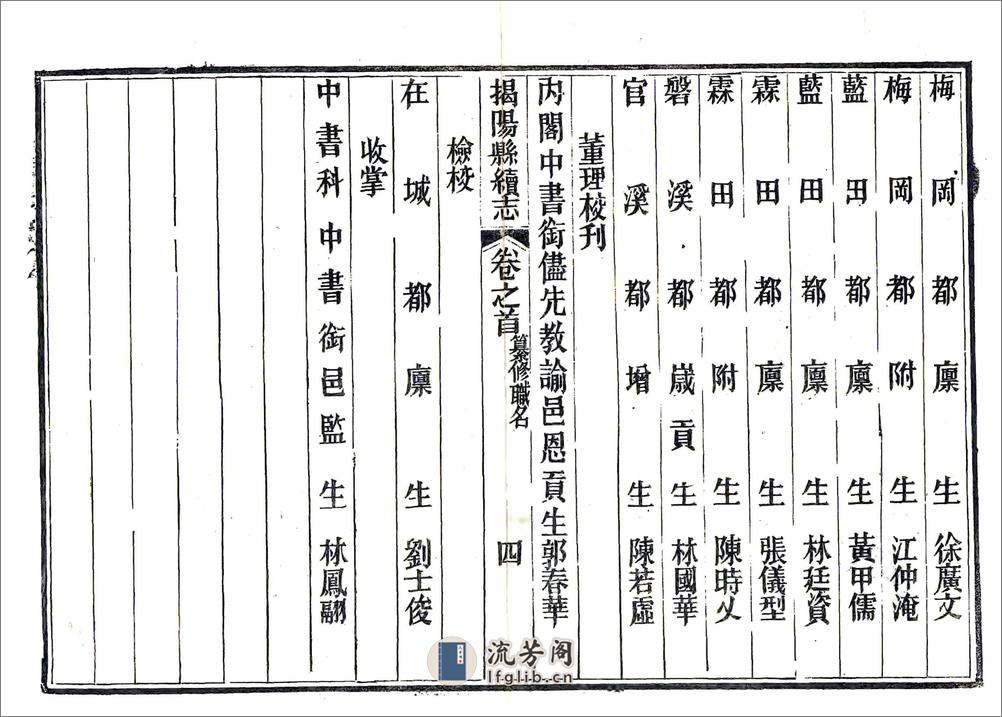 梅岡都廩生徐廣文
梅岡都附生江仲淹
藍田都廩生黃甲儒
藍田都廩生林廷資
霖田都廩生張儀型
霖田都附生陳時乂
磐溪都歲貢生林國華
官溪都增生陳若虛
董理校刋
內閣中書銜儘先教諭邑恩貢生郭春華
揭陽縣續志
卷之首
纂修職名
四
檢校
在城都廩生劉士俊
收掌
中書科中書銜邑監生林鳳翩
流芳阁
lfglib.cn